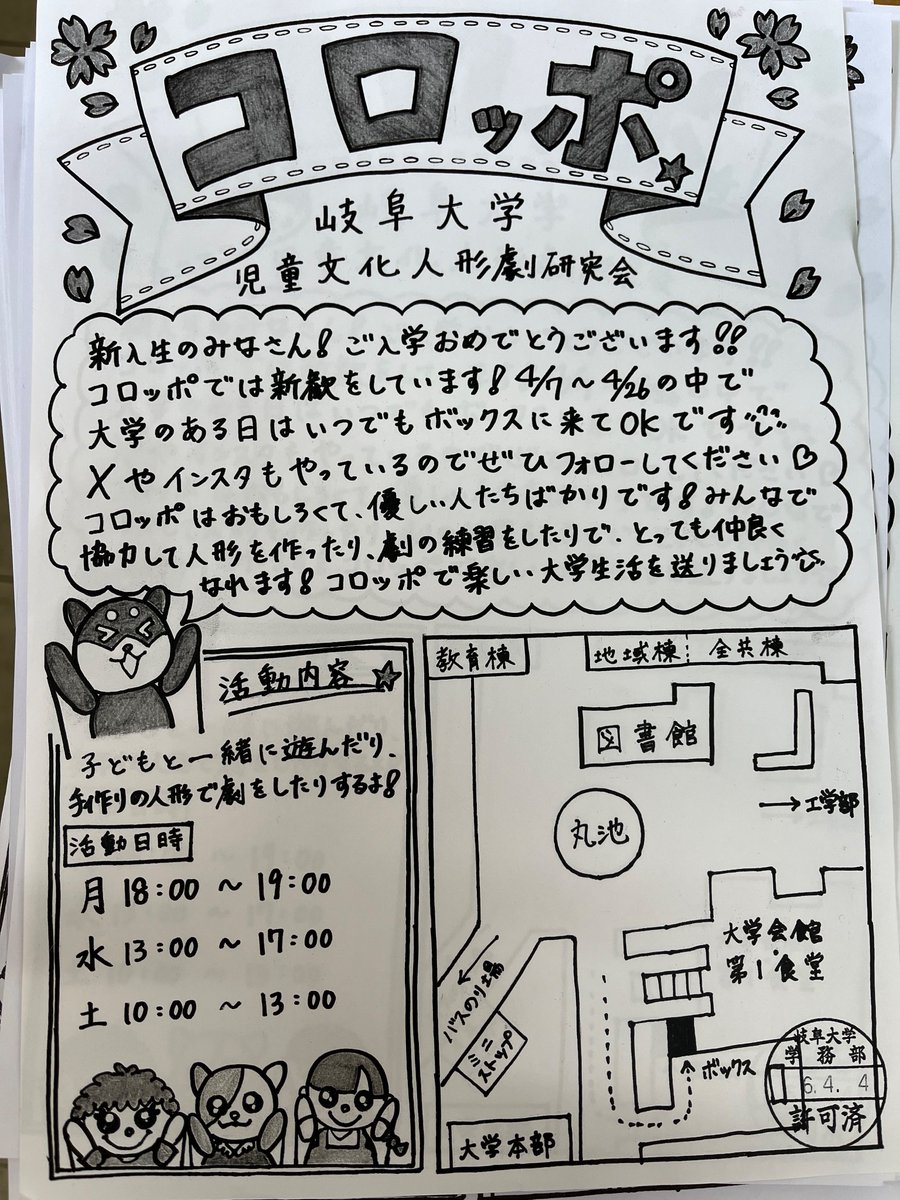 コロッポ
岐阜大学
児童文化人形劇研究会
新入生のみなさん!ご入学おめでとうございます!!
コロッポでは新歓をしています!4/7〜4/26の中で
大学のある日はいつでもボックスに来てOKです
Xやインスタもやっているのでぜひフォローしてください♡
コロッポはおもしろくて、優しい人たちばかりです!みんなで
協力して人形を作ったり、劇の練習をしたりで、とっても仲良く
なれます!コロッポで楽しい大学生活を送りましょう
活動内容☆
子どもと一緒に遊んだり、
手作りの人形で劇をしたりするよ!
活動日時
月 18:00 〜 19:00
水 13:00 〜 17:00
土 10:00 〜 13:00
教育棟
地域棟
全共棟
図書館
→工学部
丸池
大学会館
第1食堂
バスのり場
ミニ
ストップ
ボックス
大学本部
岐阜大学
学務部
6.4.4
許可済